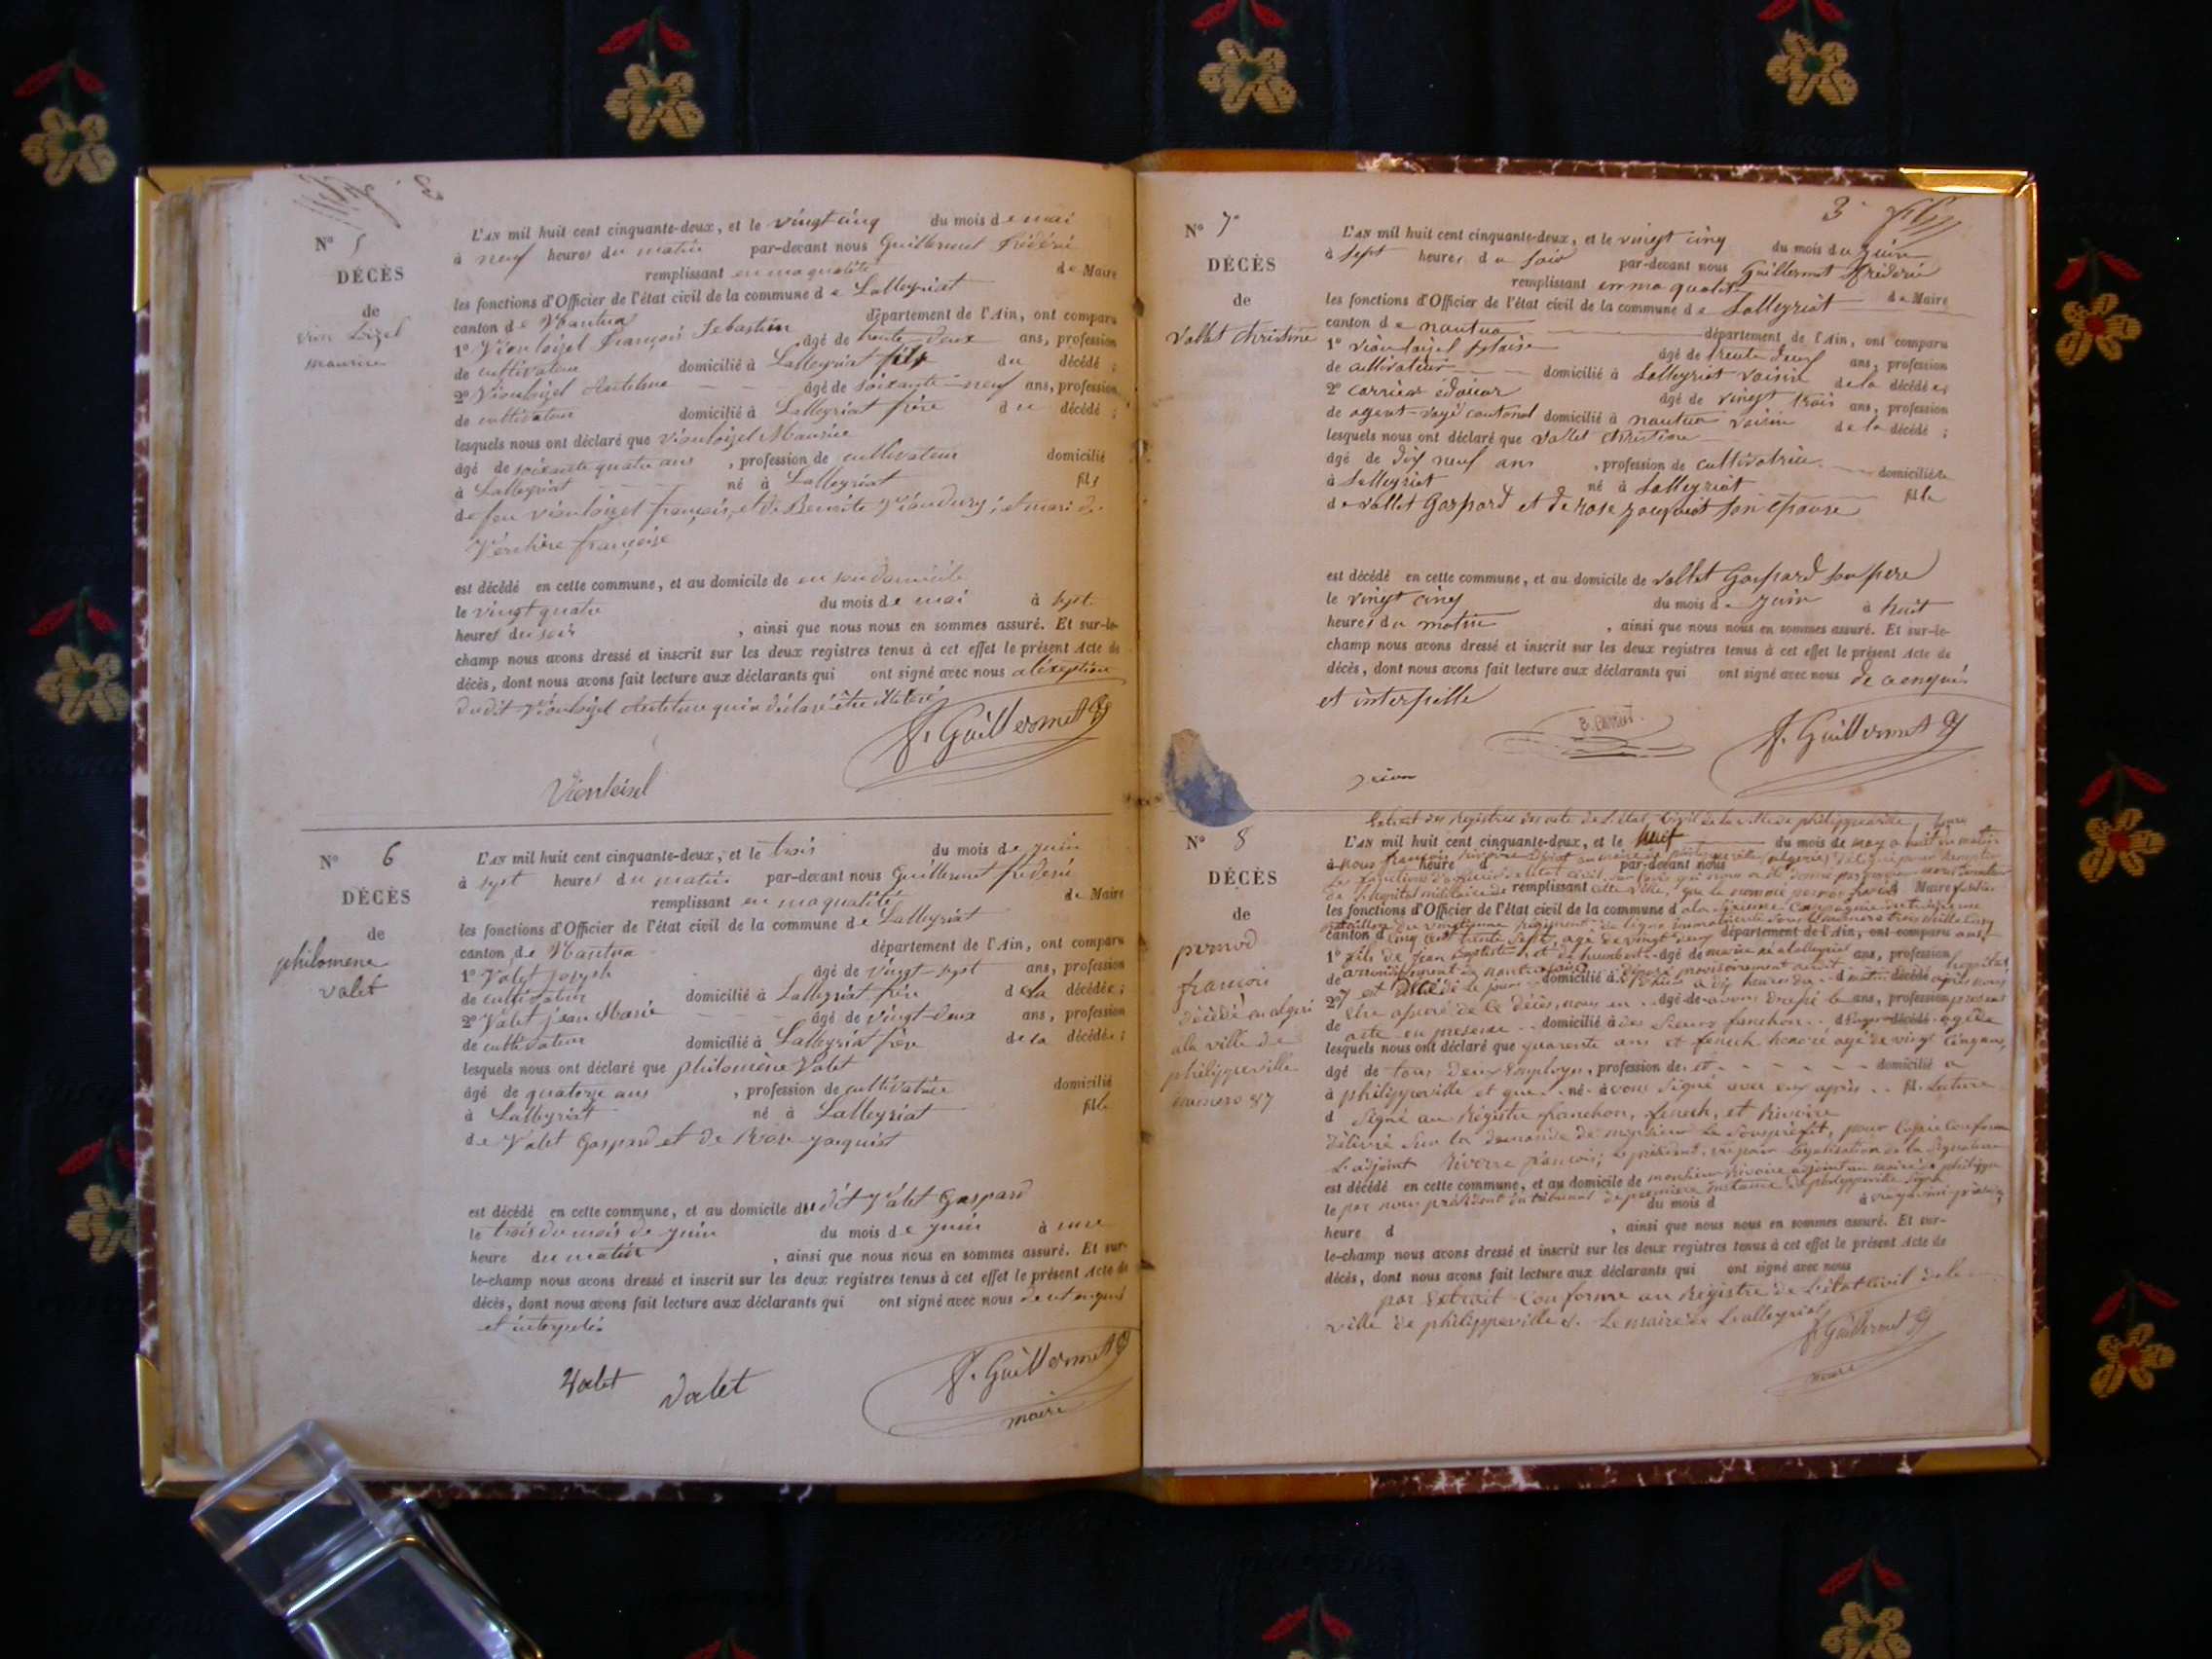 N° 5
DÉCÈS
de
Maurice
L'AN mil huit cent cinquante-deux, et le vingt cinq du mois de mai
à neuf heures du matin par-devant nous Guillermet Fréderic
remplissant en ma qualité de Maire
les fonctions d'Officier de l'état civil de la commune de Lalleyriat
canton de Nantua département de l'Ain, ont comparu
1° Vionloizel François Sebastien âgé de trente-deux ans, profession
de cultivateur domicilié à Lalleyriat fils du décédé ;
2° Vionloizel Anthelme âgé de soixante-neuf ans, profession
de cultivateur domicilié à Lalleyriat frère du décédé ;
lesquels nous ont déclaré que Vionloizel Maurice
âgé de soixante quatre ans , profession de cultivateur domicilié
à Lalleyriat né à Lalleyriat fils
de feu Vionloizel françois, et de Benoite ; et mari de
françoise
est décédé en cette commune, et au domicile de en son domicile
le vingt quatre du mois de mai à sept
heures du soir , ainsi que nous nous en sommes assuré. Et sur-le-
champ nous avons dressé et inscrit sur les deux registres tenus à cet effet le présent Acte de
décès, dont nous avons fait lecture aux déclarants qui ont signé avec nous a léxeption
dudit Vionloizel Anthelme qui a déclaré être illétéré
F. Guillermet
Vionloisel
N° 6
DÉCÈS
de
philomene
valet
L'AN mil huit cent cinquante-deux, et le trois du mois de juin
à sept heures du matin par-devant nous Guillermet fréderic
remplissant en ma qualité de Maire
les fonctions d'Officier de l'état civil de la commune de Lalleyriat
canton de Nantua département de l'Ain, ont comparu
1° Valet joseph âgé de vingt-sept ans, profession
de cultivateur domicilié à Lalleyriat frère de la décédée ;
2° Valet jean Marie âgé de vingt-deux ans, profession
de cultivateur domicilié à Lalleyriat frère de la décédée ;
lesquels nous ont déclaré que philomène Valet
âgé de quatorze ans , profession de cultivatrice domicilié
à Lalleyriat né à Lalleyriat fille
de Valet Gaspard et de Rose jacquiot
est décédé en cette commune, et au domicile du dit Valet Gaspard
le trois du mois de juin du mois de juin à une
heure du matin , ainsi que nous nous en sommes assuré. Et sur-
le-champ nous avons dressé et inscrit sur les deux registres tenus à cet effet le présent Acte de
décès, dont nous avons fait lecture aux déclarants qui ont signé avec nous
et interpelés
Valet Valet F. Guillermet
maire
3
N° 7
DÉCÈS
de
Vallet christine
L'AN mil huit cent cinquante-deux, et le vingt cinq du mois de juin
à sept heures du soir par-devant nous Guillermet fréderic
remplissant en ma qualité de Maire
les fonctions d'Officier de l'état civil de la commune de Lalleyriat
canton de nantua département de l'Ain, ont comparu
1° vionloizel âgé de trente ans, profession
de cultivateur domicilié à Lalleyriat voisin de la décédée
2° carrier édouar âgé de vingt trois ans, profession
de agent-voyé cantonal domicilié à nantua voisin de la décédé ;
lesquels nous ont déclaré que vallet christine
âgé de dix neuf ans , profession de cultivatrice domiciliée
à Lalleyriat né à Lalleyriat fille
de vallet Gaspard et de rose jacquiot son épouse
est décédé en cette commune, et au domicile de vallet Gaspard son père
le vingt cinq du mois de juin à huit
heures du matin , ainsi que nous nous en sommes assuré. Et sur-le-
champ nous avons dressé et inscrit sur les deux registres tenus à cet effet le présent Acte de
décès, dont nous avons fait lecture aux déclarants qui ont signé avec nous de ce enquis
et interpelle
F. Guillermet
N° 8
DÉCÈS
de
pernod
françois
décédé en algeri
a la ville de
philippeville
numero 87
Extrait des registres des acte de L'état Civil de la ville de philippeville
L'AN mil huit cent cinquante-deux, et le huit du mois de may a huit du matin
à nous françois heure d par-devant nous
remplissant Maire
les fonctions d'Officier de l'état civil de la commune d
canton d cinq cent trente sept, agé de vingt deux département de l'Ain, ont comparu ans,
1° fils de Jean Baptiste et de humbert âgé de ans, profession
de domicilié à décédé
2° âgé de ans, profession
de acte en presence domicilié à des sieurs fanchon d décédé agé de
lesquels nous ont déclaré que quarente ans et fenech honoré agé de vingt cinq ans,
âgé de tous deux Employés, profession de et domicilié a
à philippeville et que né avons Signé avec eux après fil Lecture
d Signé au Régistre fanchon, fenech, et Rivoire
délivré Sur la demande de monsieur Le Souspréfet, pour Copie Conforme
L'adjoint Rivoire françois;
est décédé en cette commune, et au domicile de monsieur Rivoire adjoint au maire de philippe
le par nous président du tribunal de première instance de philippeville du mois d à
heure d , ainsi que nous nous en sommes assuré. Et sur-
le-champ nous avons dressé et inscrit sur les deux registres tenus à cet effet le présent Acte de
décès, dont nous avons fait lecture aux déclarants qui ont signé avec nous
par Extrait Conforme au Régistre de L'état Civil de la
ville de philippeville Le maire de Lalleyriat
F. Guillermet
maire